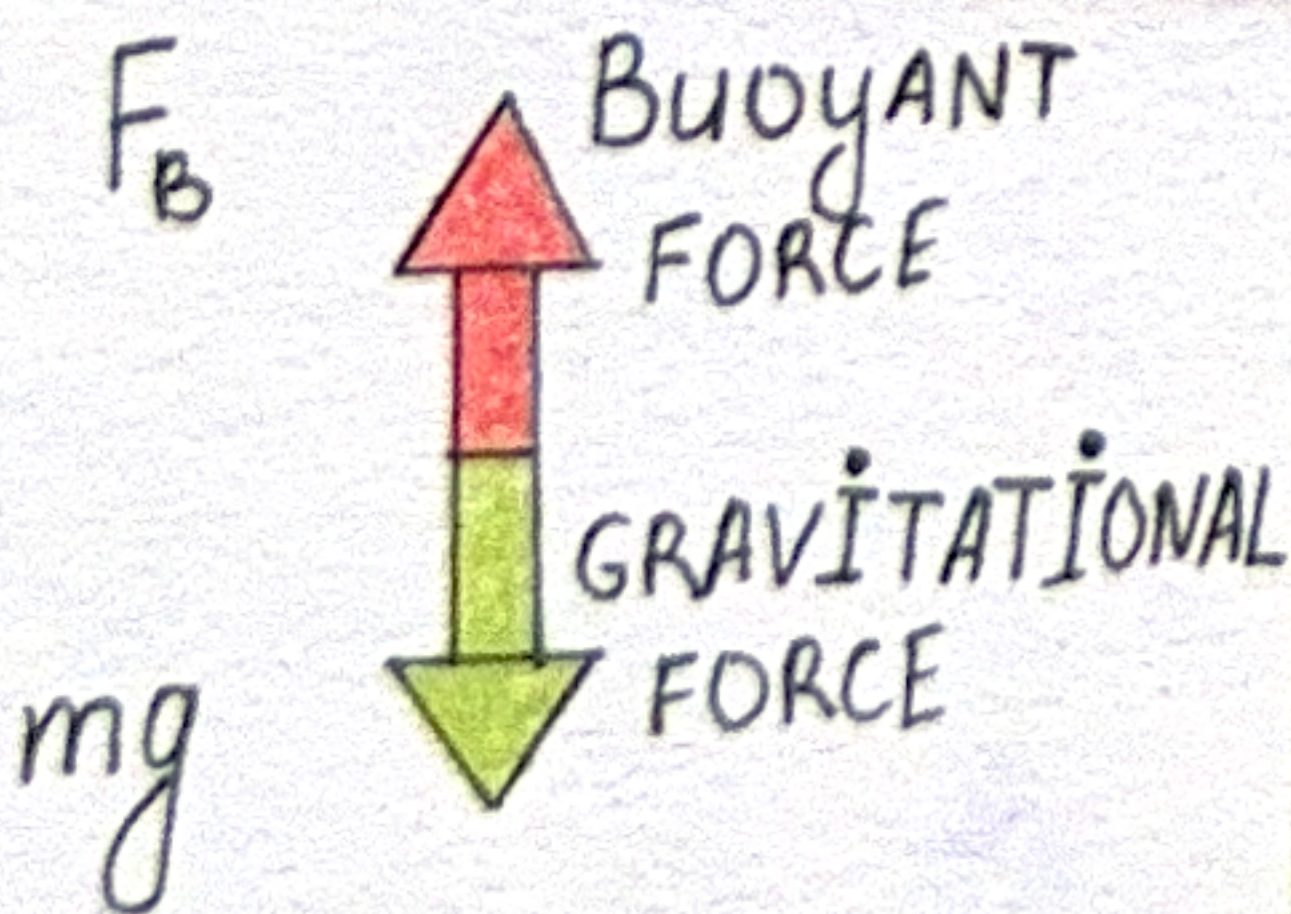 F_B
BuoyANT
FORCE
GRAVİTATİONAL
FORCE
mg